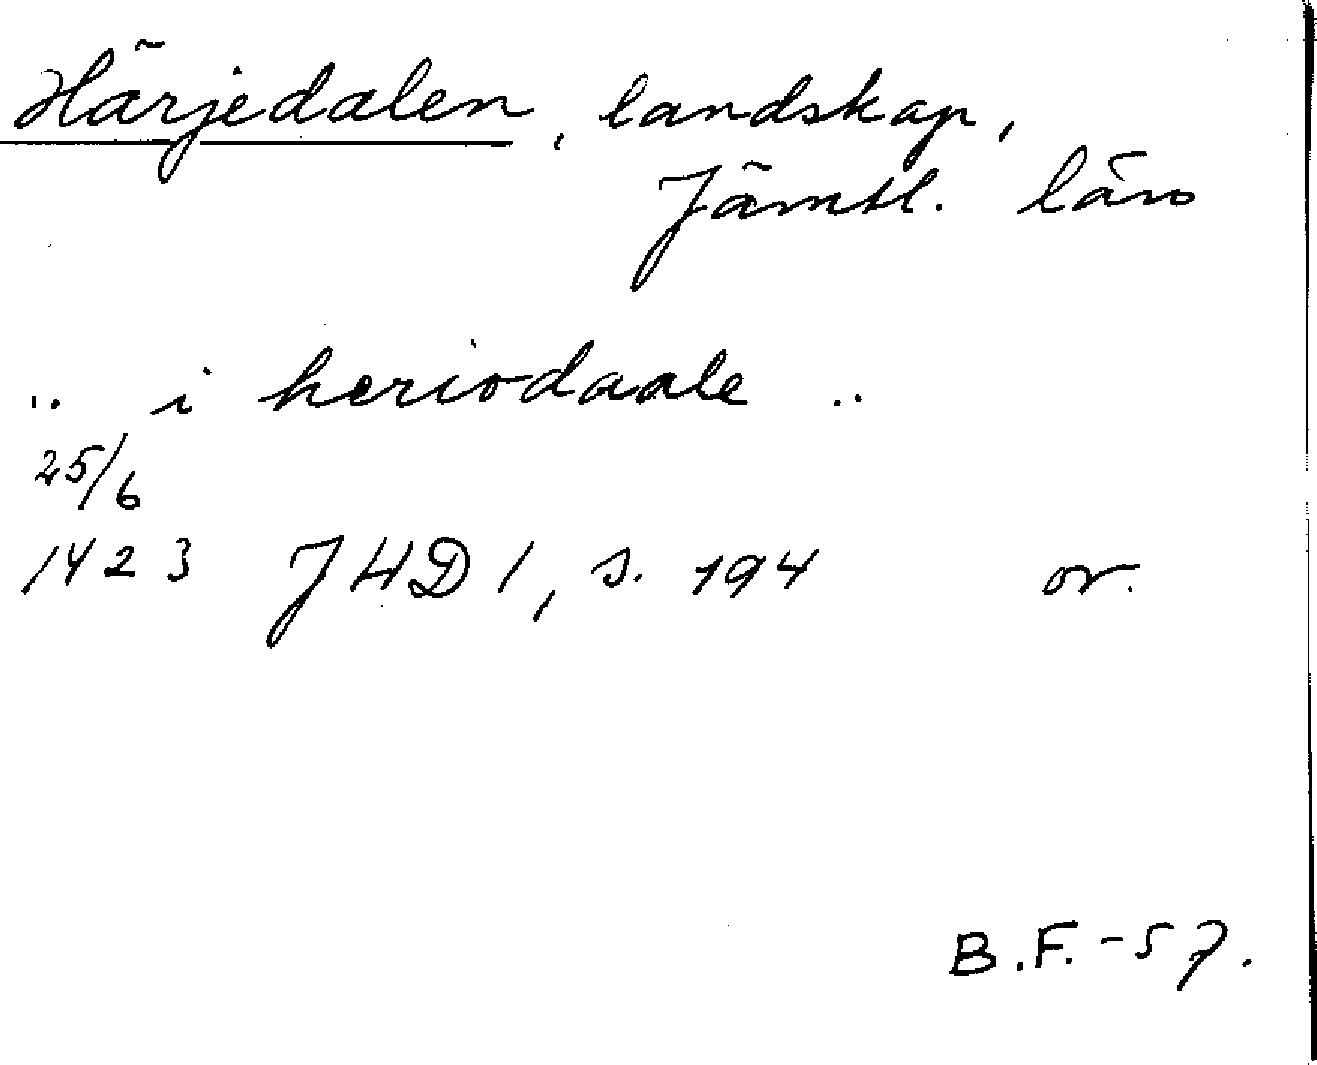 Härjedalen, landskap,
Jämtl. län
.. i heriodaale ..
25/6
1423 JHD 1, s. 194 or.
B.F. -57.